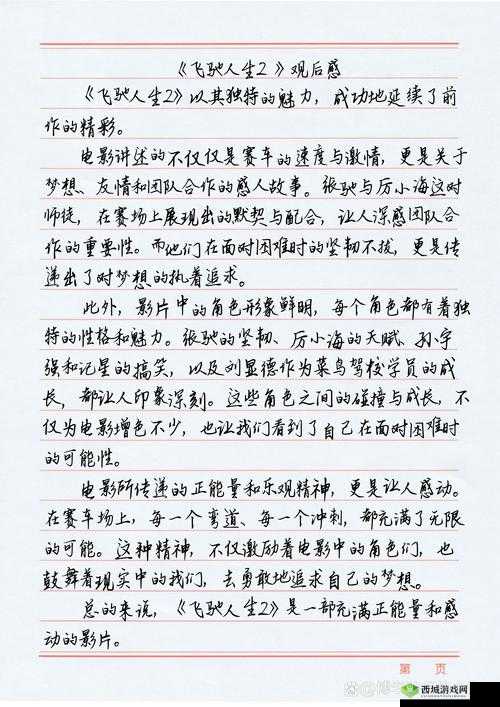 《飞驰人生2》观后感
《飞驰人生2》以其独特的魅力，成功地延续了前
作的精彩。
电影讲述的不仅仅是赛车的速度与激情，更是关于
梦想、友情和团队合作的感人故事。张驰与厉小海这对
师徒，在赛场上展现出的默契与配合，让人深感团队合
作的重要性。而他们在面对困难时的坚韧不拔，更是传
递出了对梦想的执着追求。
此外，影片中的角色形象鲜明，每个角色都有着独
特的性格和魅力。张驰的坚韧、厉小海的天赋、孙宇
强和记星的搞笑，以及刘显德作为菜鸟驾校学员的成
长，都让人印象深刻。这些角色之间的碰撞与成长，不
仅为电影增色不少，也让我们看到了自己在面对困难时
的可能性。
电影所传递的正能量和乐观精神，更是让人感动。
在赛车场上，每一个弯道、每一个冲刺，都充满了无限
的可能。这种精神，不仅激励着电影中的角色们，也
鼓舞着现实中的我们，去勇敢地追求自己的梦想。
总的来说，《飞驰人生2》是一部充满正能量和感
动的影片。
第 页
西城游戏网